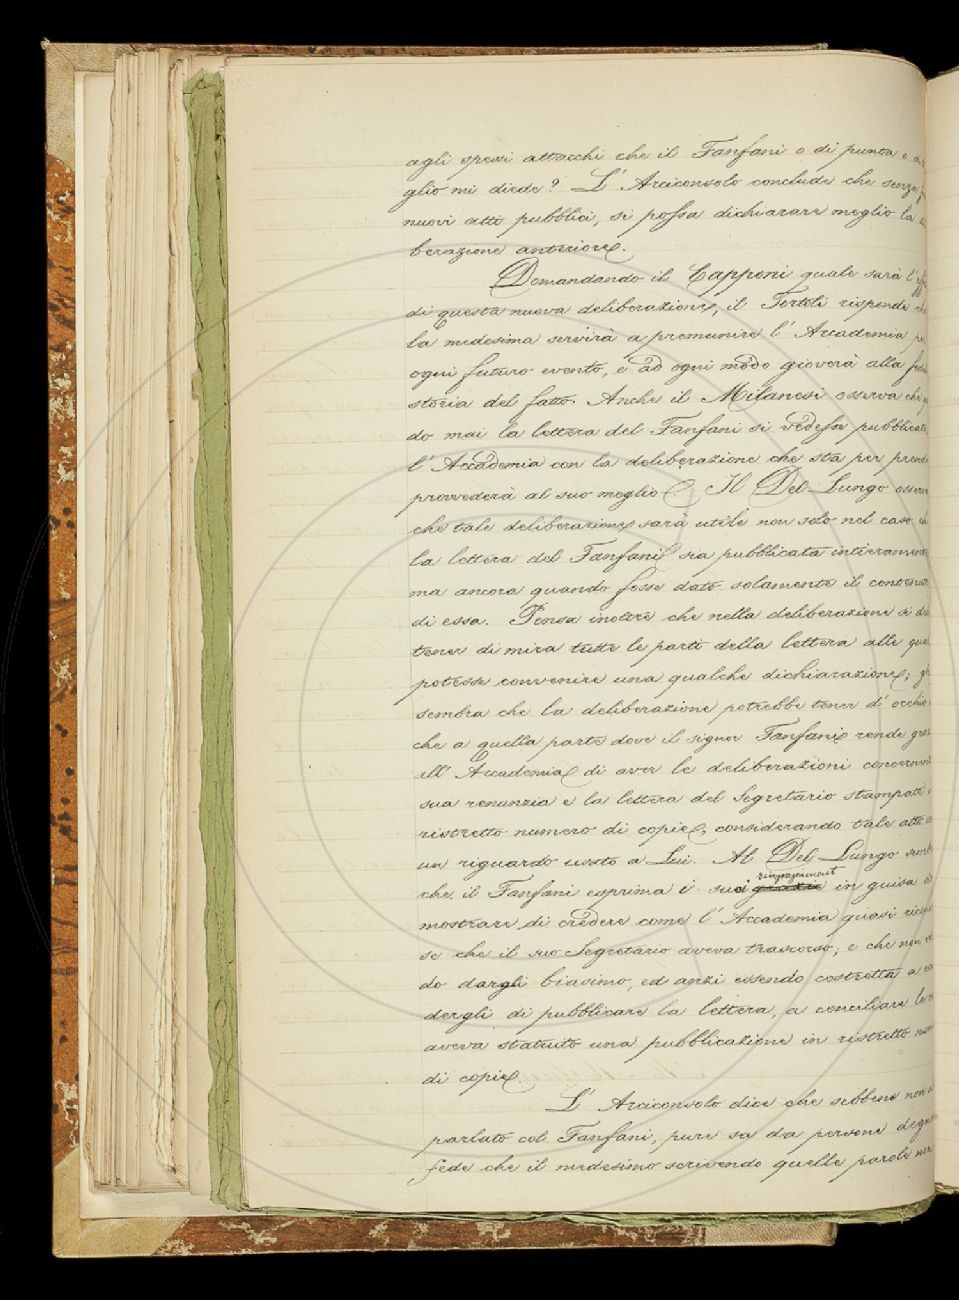 agli spessi attacchi che il Fanfani o di punta o di
glio mi diede? L' Arciconsolo conclude che senza
nuovi atti pubblici, si possa dichiarare meglio la
berazione anteriore.
Domandando il Capponi quale sarà l'
di questa nuova deliberazione, il Tortoli risponde che
la medesima servirà a premunire l' Accademia per
ogni futuro evento, e ad ogni modo gioverà alla
storia del fatto. Anche il Milanesi osserva che
do mai la lettera del Fanfani si vedesse pubblicata,
l' Accademia con la deliberazione che sta per prende
provvederà al suo meglio. Il Del Lungo osserva
che tale deliberazione sarà utile non solo nel caso che
la lettera del Fanfani sia pubblicata intieramente
ma ancora quando fosse dato solamente il contenuto
di essa. Pensa inoltre che nella deliberazione si de
tener di mira tutte le parti della lettera alle qual
potesse convenire una qualche dichiarazione; gli
sembra che la deliberazione potrebbe tener d' occhio
che a quella parte dove il signor Fanfani rende graz
all' Accademia di aver le deliberazioni concernent
sua renunzia e la lettera del Segretario stampate
ristretto numero di copie, considerando tale atto
un riguardo usato a Lui. Al Del Lungo sembra
che il Fanfani esprima i suoi grazie ringraziamenti in guisa
mostrare di credere come l' Accademia quasi
se che il suo Segretario aveva trascorso; e che non
do dargli biasimo, ed anzi essendo costretta a
dergli di pubblicare la lettera, a conciliare le
aveva statuito una pubblicazione in ristretto num
di copie.
L' Arciconsolo dice che sebbene non
parlato col Fanfani, pure sa da persone degne
fede che il medesimo scrivendo quelle parole